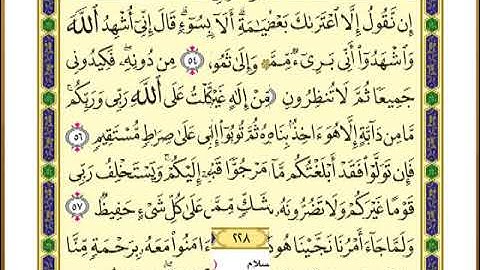 إِن نَّقُولُ إِلَّا اعْتَرَىٰكَ بَعْضُ بِسُوٓءٍ قَالَ إِنِّىٓ أُشْهِدُ اللَّهَ
وَاشْهَدُوٓا أَنِّى بَرِىٓءٌ مِّمَّ وَإِلَىٰ ثَمُو ٥٤ مِن دُونِهِۦ فَكِيدُونِى
جَمِيعًا ثُمَّ لَا تُنظِرُونِ مِّنْ إِلَٰهٍ غَيْ كَّلْتُ عَلَى اللَّهِ رَبِّى وَرَبِّكُم
مَّا مِن دَآبَّةٍ إِلَّا هُوَ ءَاخِذٌۢ بِنَا ثُمَّ تُوبُوٓا إِ عَلَىٰ صِرَٰطٍ مُّسْتَقِيمٍ ٥٦
فَإِن تَوَلَّوْا فَقَدْ أَبْلَغْتُكُم مَّآ مَرْجُوًّا قَبْ إِلَيْكُمْ وَيَسْتَخْلِفُ رَبِّى
قَوْمًا غَيْرَكُمْ وَلَا تَضُرُّونَهُۥ شَكٍّ مِّمَّ عَلَىٰ كُلِّ شَىْءٍ حَفِيظٌ ٥٧
٢٢٨
وَلَمَّا جَآءَ أَمْرُنَا نَجَّيْنَا هُودًا ءَامَنُوا مَعَهُۥ بِرَحْمَةٍ مِّنَّا
سلام